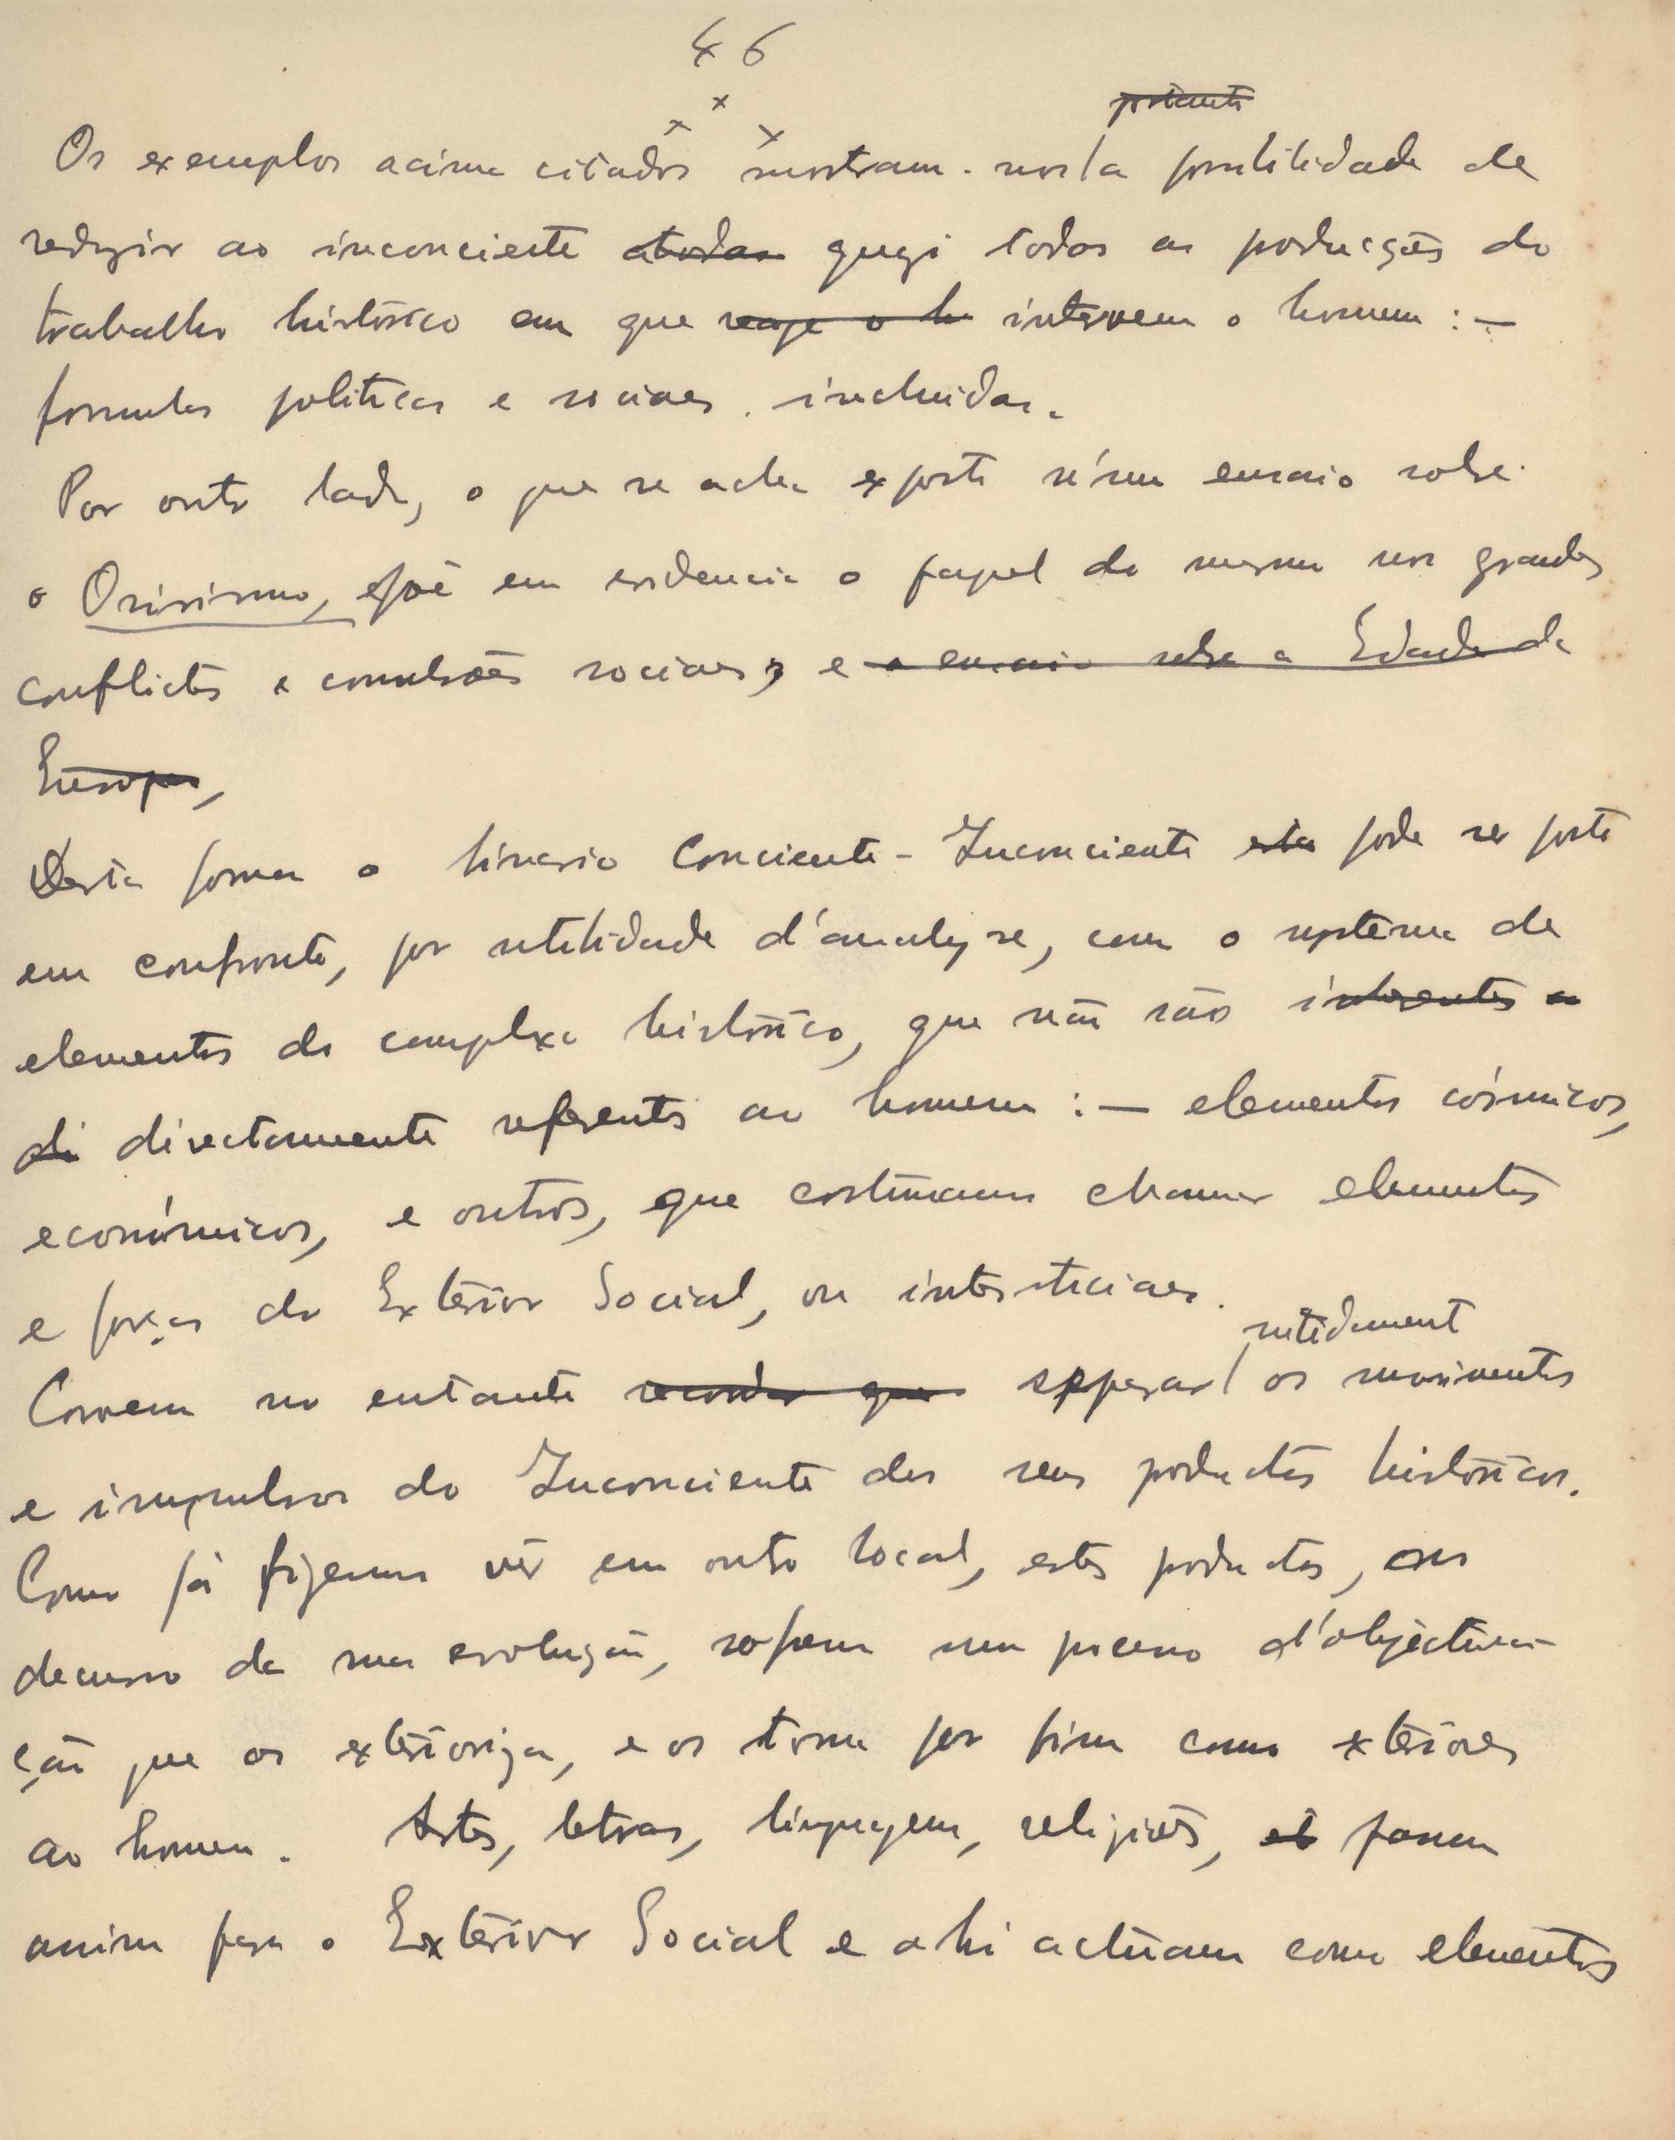 46
x
x x
portanto
Os exemplos acima citados mostram-nos a possibilidade de
reduzir ao inconciente a todas quazi todas as producções do
trabalho histórico em que reage o h intervem o homem :—
formulas politicas e sociaes incluidas.
Por outro lado, o que se acha exposto n'um ensaio sobre
o Onirismo, põe em evidencia o papel do mesmo nos grandes
conflictos e convulsões sociaes, e o ensaio sobre a Edade da
Europa,
Desta forma o binario Conciente-Inconciente esta pode ser posto
em confronto, por utilidade d'analyse, com o systema de
elementos do complexo histórico, que não são inherentes a
di directamente referentes ao homem :— elementos cósmicos,
económicos, e outros, que costumamos chamar elementos
e forças do Exterior Social, ou intersticiaes.
nitidament
Convem no entanto recordar que separar os movimentos
e impulsos do Inconciente dos seus productos históricos.
Como já fizemos vêr em outro local, estes productos, no
decurso da sua evolução, sofrem um processo d'objectiva-
ção que os exterioriza, e os torna por fim como exteriores
ao homem. Artes, letras, linguagem, religiões, et passam
assim para o Exterior Social e ahi actúam como elementos